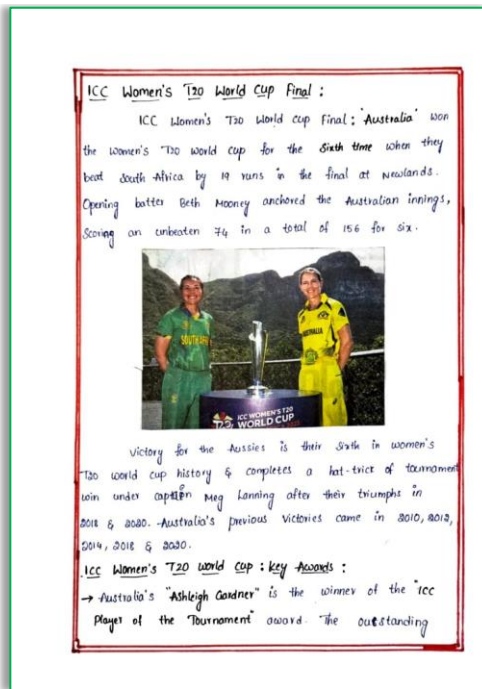 ICC Women's T20 World Cup Final :
ICC Women's T20 World Cup Final : "Australia" won
the women's T20 world cup for the sixth time when they
beat South Africa by 19 runs in the final at Newlands.
Opening batter Beth Mooney anchored the Australian innings,
Scoring an unbeaten 74 in a total of 156 for six.
SOUTH AFRI
AUSTRALIA
ICC WOMEN'S T20
WORLD CUP
Victory for the Aussies is their sixth in women's
T20 world cup history & completes a hat-trick of tournament
win under captión Meg Lanning after their triumphs in
2018 & 2020. Australia's previous Victories came in 2010, 2012,
2014, 2018 & 2020.
ICC Women's T20 world cup : key Awards :
→ Australia's "Ashleigh Gardner" is the winner of the "ICC
Player of the Tournament" award. The outstanding